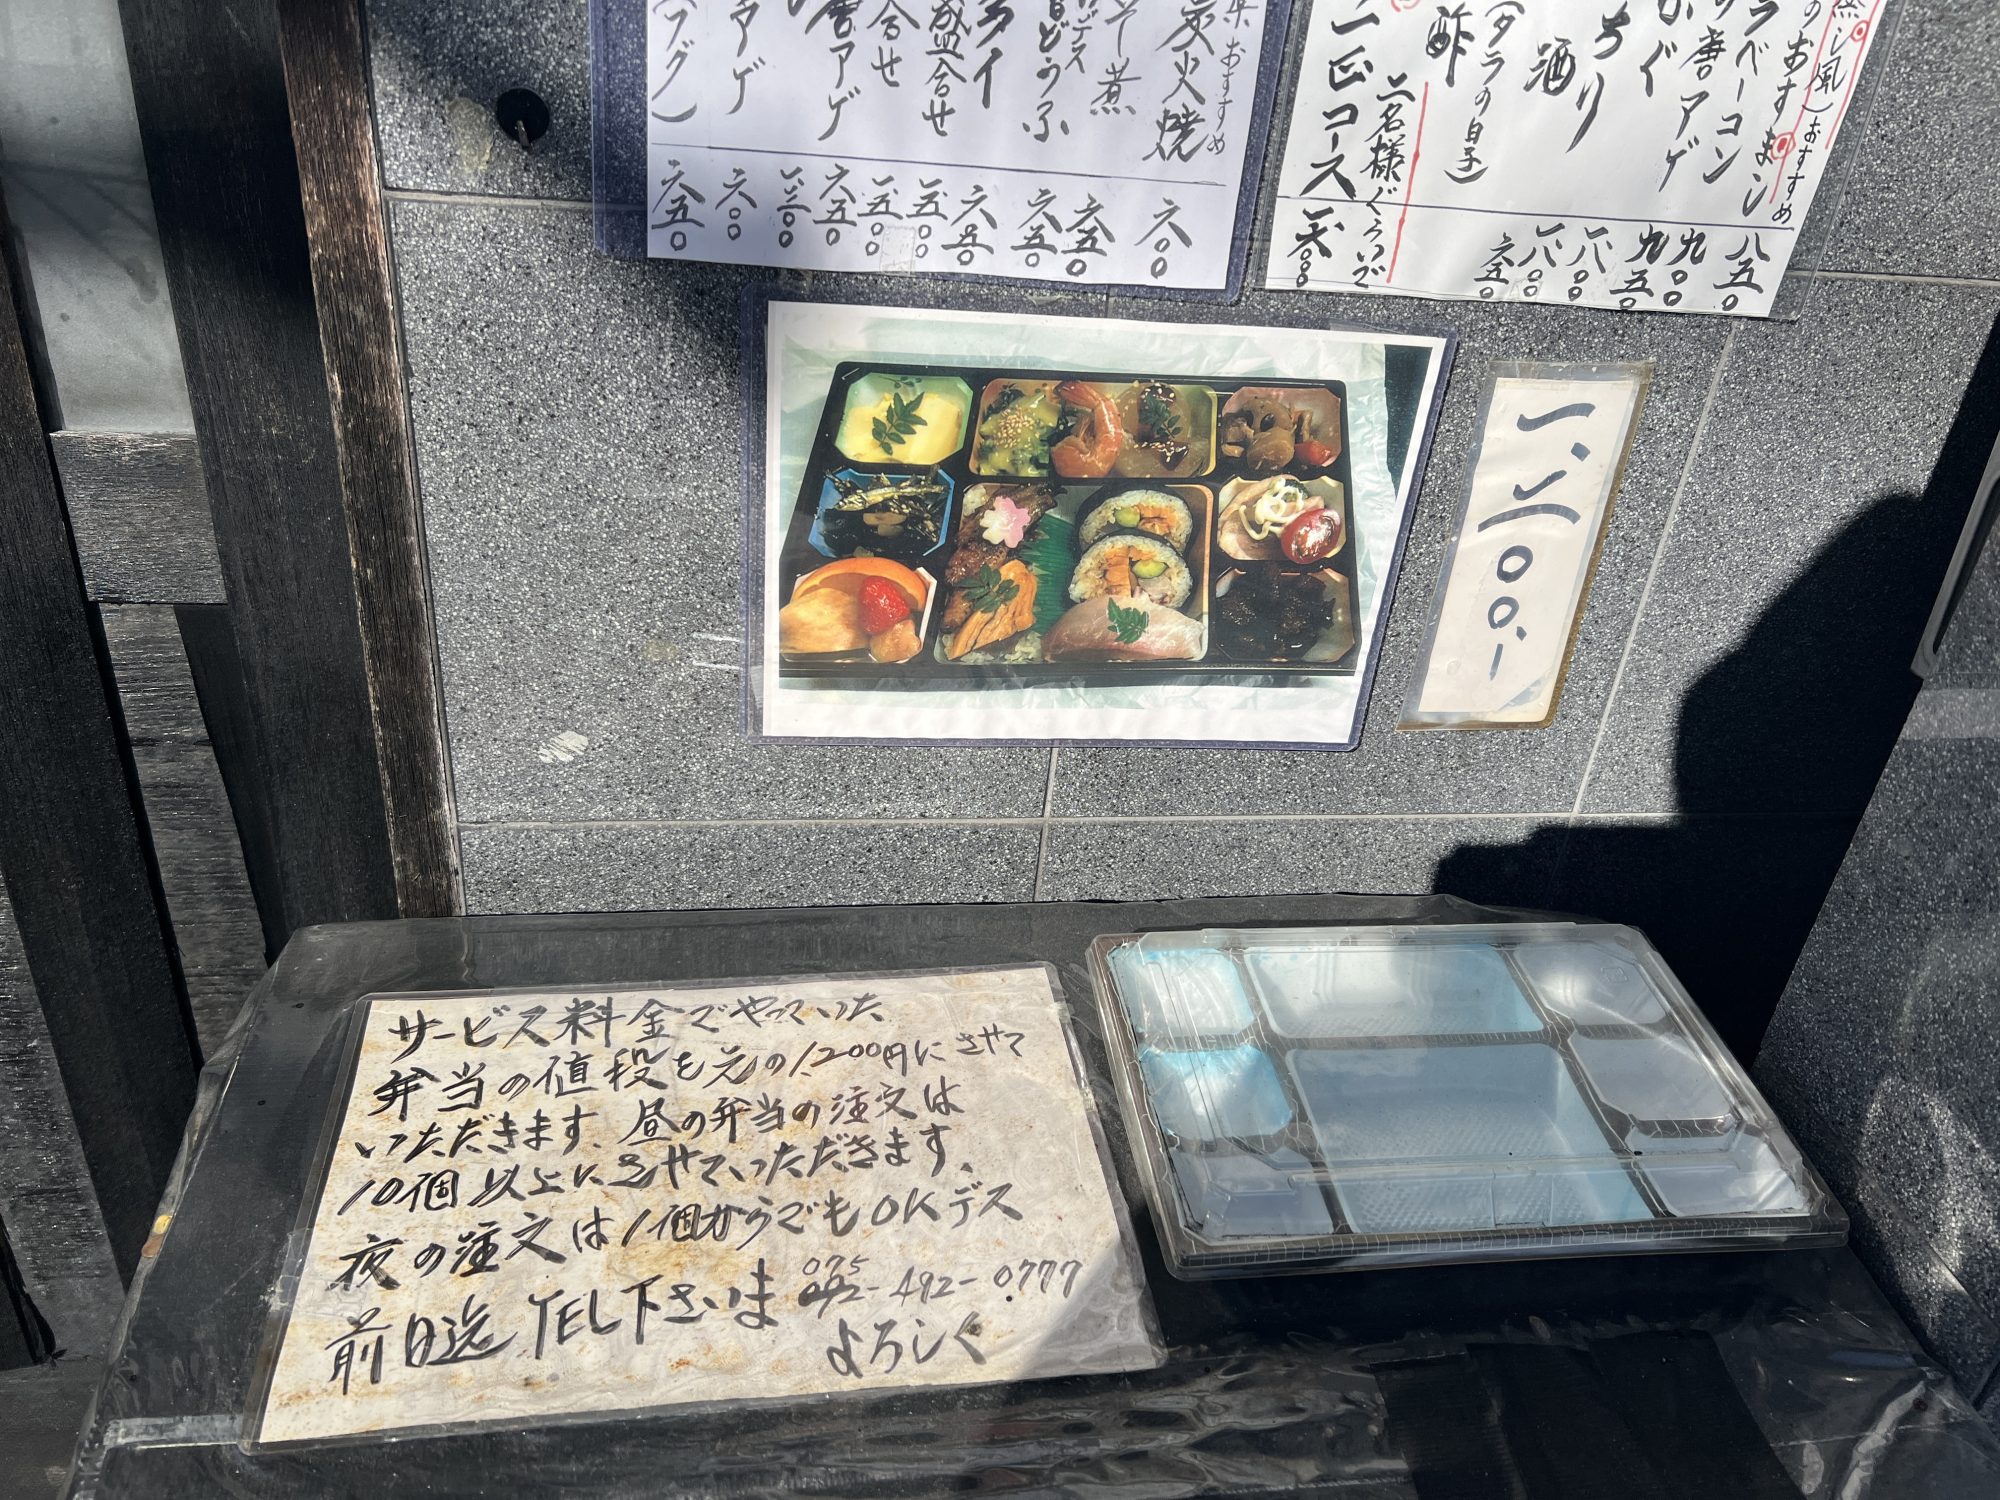 炭火焼 おすすめ 六〇〇
煮 六五〇
どうふ 六五〇
六五〇
盛合せ 一、五〇〇
合せ 一、五〇〇
唐アゲ 六五〇
一、二〇〇
アゲ 六〇〇
(フグ) 六五〇
蒸し風) おすすめ
のおすまし
ラベーコン 八五〇
の唐アゲ 九〇〇
ふぐ 九五〇
ちり 一、八〇〇
酒 一、八〇〇
(タラの白子)
酢 六五〇
二名様ぐらいで
コース
一、二〇〇.-
サービス料金でやっていた
弁当の値段を元の1,200円にさせて
いただきます、昼の弁当の注文は
10個以上にさせていただきます、
夜の注文は1個からでもOKデス
075
092-492-0777
前日迄TEL下さいま
よろしく